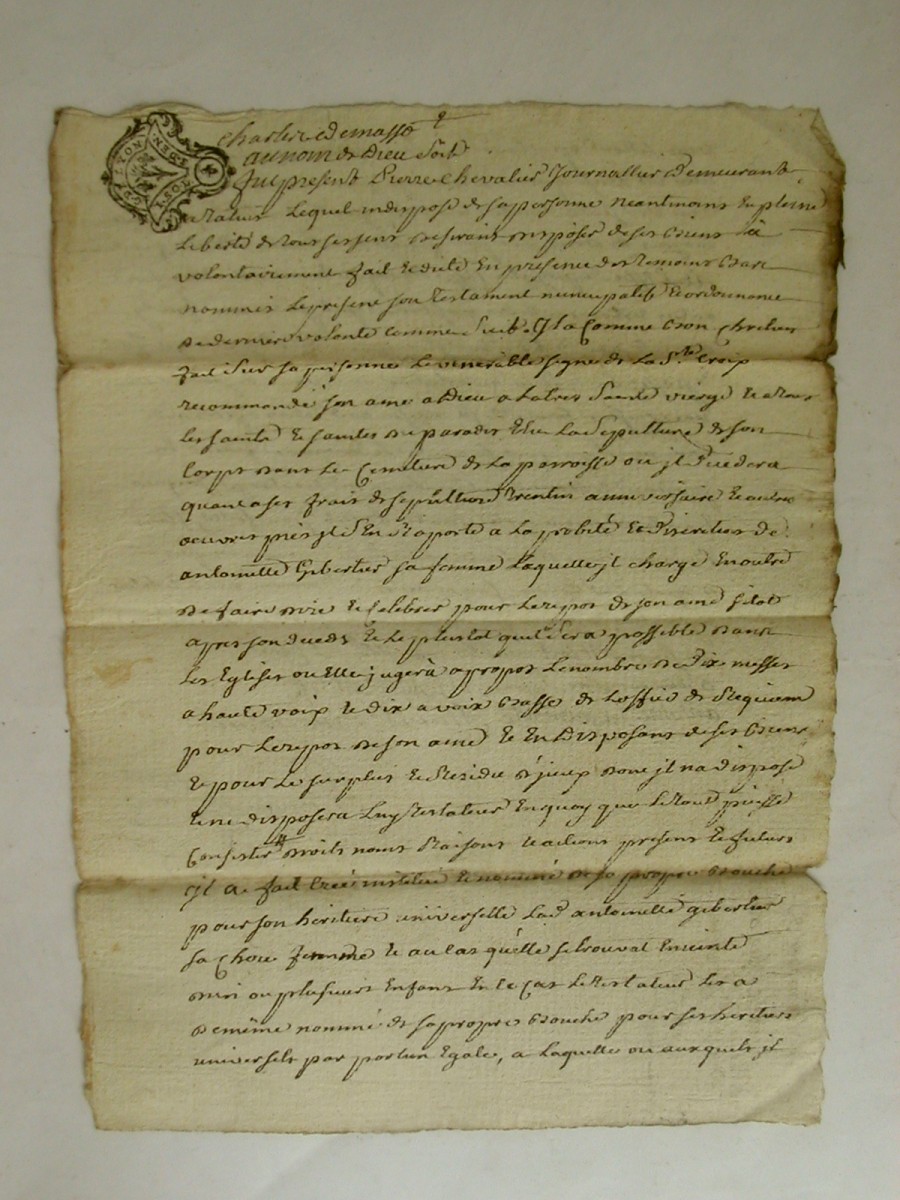 au nom de Dieu soit
fut present Pierre Chevalier Journallier demeurant
Lequel indisposé de sa personne neantmoins en pleine
Liberté de tous ses sens desirant disposer de ses biens a
volontairement fait et dicté En presence des temoins bas
nommés Le present son testament nuncupatif et ordonnance
de derniere volonté comme suit. Jl a comme bon chretien
fait sur sa personne Le venerable signe de La Ste Croix
recommandé son ame a Dieu a La tres Sainte vierge et a tous
Les saints et saintes de paradis Elu La Sepulture de son
Corps dans Le Cemetiere de La parroisse ou jl decedera
quant a ses frais de sepulture trentin anniversaire et autres
oeuvres pies jl s'En raporte a La probité et Discretion de
antoinette Gibertier sa femme Laquelle jl charge En outre
de faire dire et celebrer pour Le repos de son ame sitot
apres son deces et Le plustot quil sera possible dans
Les Eglises ou Elle jugera a propos Le nombre de Dix messes
a haute voix et dix a voix basse de Loffice de Requiem
pour Le repos de son ame et En Disposant de ses biens
et pour Le surplus et Residu d'jceux dont jl n'a disposé
et ne disposera Luy testateur En quoy que Le tout puisse
Consister droits noms Raisons et actions presents et futurs
jl a fait creé institué et nommé de sa propre bouche
pour son heritiere universelle Lad. antoinette gibertier
sa chere femme et au cas qu'elle se trouvat Enceinte
d'un ou plusieurs Enfans En ce cas Le testateur Les a
de même nommé de sa propre bouche pour ses heritiers
universels par portion Egale, a Laquelle ou auxquels jl